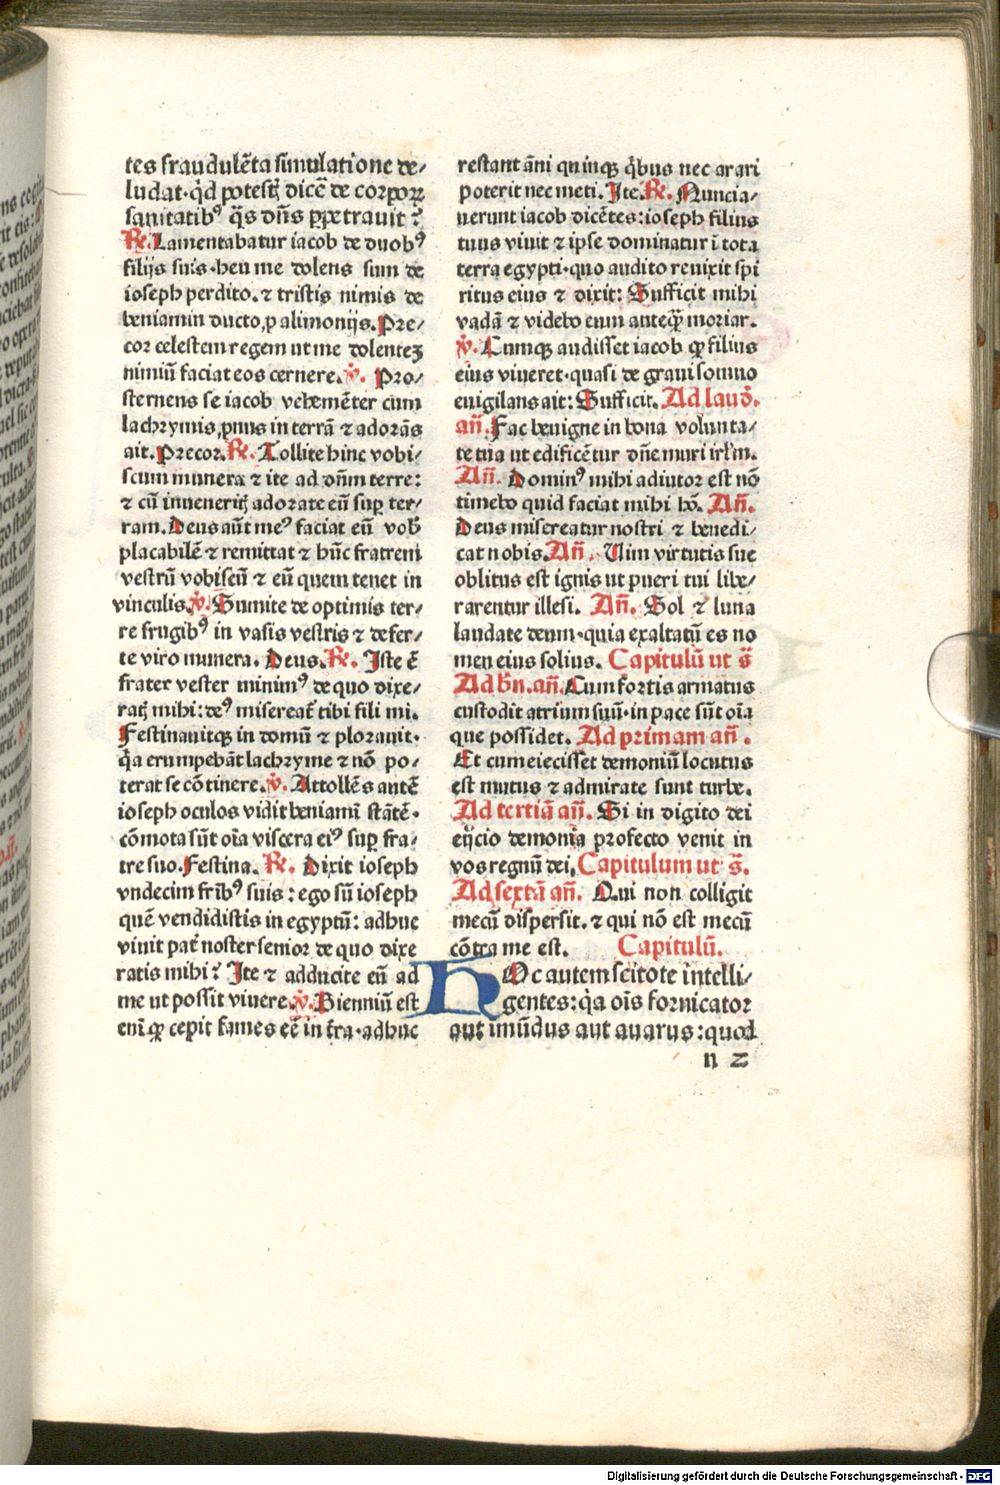 tes fraudulēta simulatione de⸗
ludat·q̇d potestꝫ dicē de corporꝝ
sanitatibꝰ q̄s dn̄s ꝑpetrauit?
℟. Lamentabatur iacob de duobꝰ
filijs suis·heu me dolens sum de
ioseph perdito.⁊ tristis nimis de
beniamin ducto,ꝓ alimonijs.Pre⸗
cor celestem regem ut me dolenteꝫ
nimiū faciat eos cernere. ℣. Pro⸗
sternens se iacob vehemēter cum
lachrymis,pnus in terrā ⁊ adorās
ait.Precor.℟. Tollite hinc vobi⸗
scum munera ⁊ ite ad dn̄m terre:
⁊ cū inueneritꝭ adorate eū suꝑ ter⸗
ram.Deus aūt meꝰ faciat eū vob̄
placabilē ⁊ remittat ⁊ hūc fratrem
vestrū vobiscū ⁊ eū quem tenet in
vinculis.℣. Sumite de optimis ter⸗
re frugibꝰ in vasis vestris ⁊ defer⸗
te viro munera. Deus.℟. Iste ē
frater vester minimꝰ de quo dixe⸗
ratꝭ mihi:deꝰ misereat̄ tibi fili mi.
Festinauitqꝫ in domū ⁊ plorauit·
q̇a erumpebāt lachryme ⁊ nō po⸗
terat se cōtinere.℣. Attollēs autē
ioseph oculos vidit beniamī stātē·
cōmota sūt oīa viscera eiꝰ suꝑ fra⸗
tre suo.Festina. ℟. Dixit ioseph
vndecim frībꝰ suis: ego sū ioseph
quē vendidistis in egyptū: adhuc
viuit pat̄ noster senior de quo dixe
ratis mihi? Ite ⁊ adducite eū ad
me ut possit viuere.℣. Bienniū est
enī ꝙ cepit fames eē in tra·adhuc
restant āni quinqꝫ q̇bus nec arari
poterit nec meti. Ite.℟. Nuncia⸗
uerunt iacob dicētes:ioseph filius
tuus viuit ⁊ ipse dominatur ī tota
terra egypti·quo audito reuixit spi
ritus eius ⁊ dixit: Sufficit mihi
vadā ⁊ videbo eum anteqꝫ̄ moriar.
℣. Cumqꝫ audisset iacob ꝙ filius
eius viueret·quasi de graui somno
euigilans ait: Sufficit. Ad laud̄.
an̄. Fac benigne in bona volunta⸗
te tua ut edificētur dn̄e muri irl̄m.
An̄. Dominꝰ mihi adiutor est nō
timebo quid faciat mihi hō. An̄.
Deus misereatur nostri ⁊ benedi⸗
cat nobis. An̄. Uim virtutis sue
oblitus est ignis ut pueri tui libe⸗
rarentur illesi. An̄. Sol ⁊ luna
laudate deum·quia exaltatū es no
men eius solius. Capitulū ut s̄
Ad bn̄. an̄. Cum fortis armatus
custodit atrium suū·in pace sūt oīa
que possidet. Ad primam an̄.
Et cum eiecisset demoniū locutus
est mutus ⁊ admirate sunt turbe.
Ad tertiā an̄. Si in digito dei
eijcio demonia profecto venit in
vos regnū dei. Capitulum ut s̄.
Ad sextā an̄. Qui non colligit
mecū dispersit. ⁊ qui nō est mecū
cōtra me est. Capitulū.
HOc autem scitote intelli⸗
gentes: q̇a oīs fornicator
aut imūdus aut auarus:quod
n 2
Digitalisierung gefördert durch die Deutsche Forschungsgemeinschaft · DFG